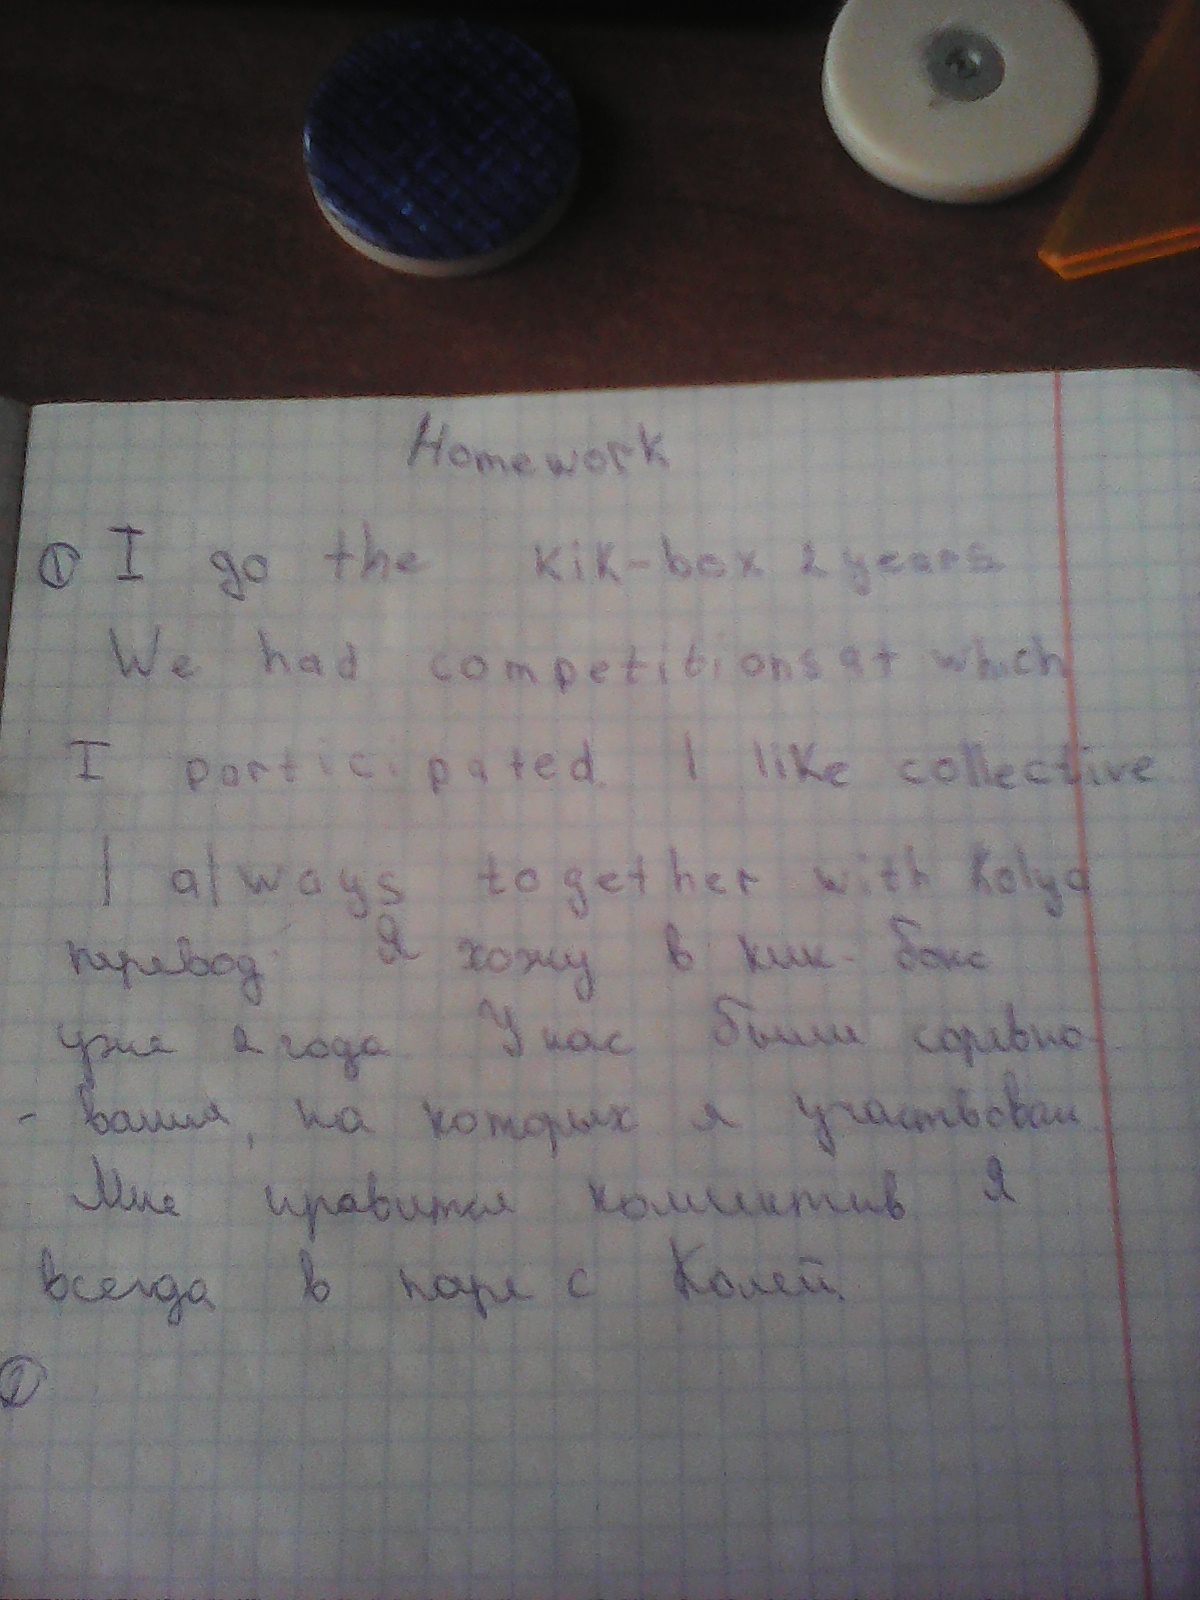 Homework
① I go the kik-box 2 years
We had competitions at which
I participated. I like collective
I always together with Kolya
перевод: Я хожу в кик-бокс
уже 2 года У нас были соревно-
- вания, на которых я участвовал.
Мне нравится коллектив Я
всегда в паре с Колей.
②